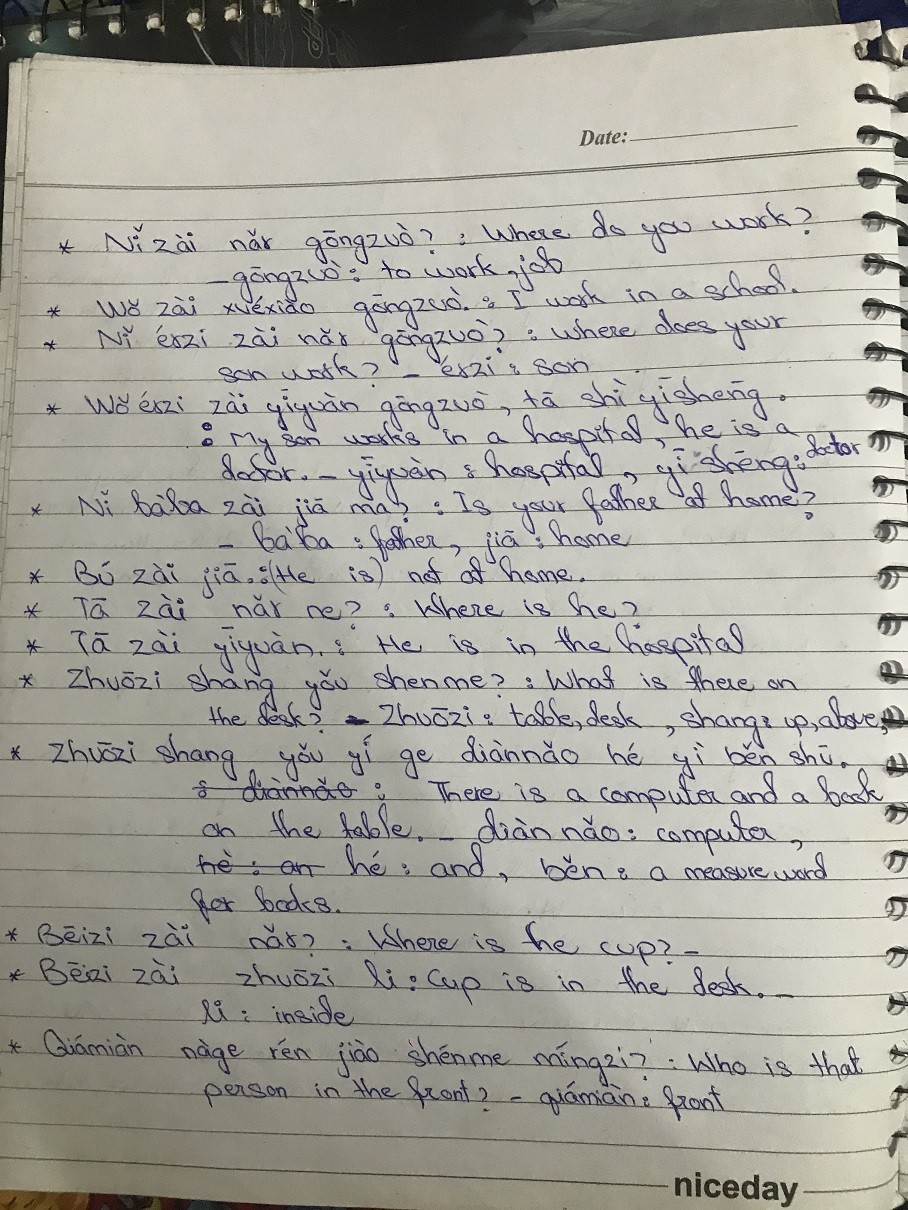 Date:
* Nǐ zài năr gōngzuò? : Where do you work?
- gōngzuò : to work, job
* Wǒ zài xuéxiào gōngzuò. : I work in a school.
* Nǐ érzi zài năr gōngzuò? : where does your
son work? - érzi : son
* Wǒ érzi zài yīyuàn gōngzuò, tā shì yīshēng.
: My son works in a hospital, he is a
doctor. - yīyuàn : hospital, yī shēng : doctor
* Nǐ bàba zài jiā ma? : Is your father at home?
- bàba : father, jiā : home
* Bú zài jiā. : (He is) not at home.
* Tā zài năr ne? : Where is he?
* Tā zài yīyuàn. : He is in the hospital
* Zhuōzi shang yǒu shenme? : What is there on
the desk? - Zhuōzi : table, desk, shang : up, above,
* Zhuōzi shang yǒu yí ge diànnǎo hé yì běn shū.
: diànnǎo : There is a computer and a book
on the table. - diànnǎo : computer,
hè : an hé : and, běn : a measure word
for books.
* Bēizi zài năr? : Where is the cup? -
* Bēizi zài zhuōzi li : Cup is in the desk. -
li : inside
* Qiámiàn nàge rén jiào shénme míngzi? : Who is that
person in the front? - qiámiàn : front
niceday